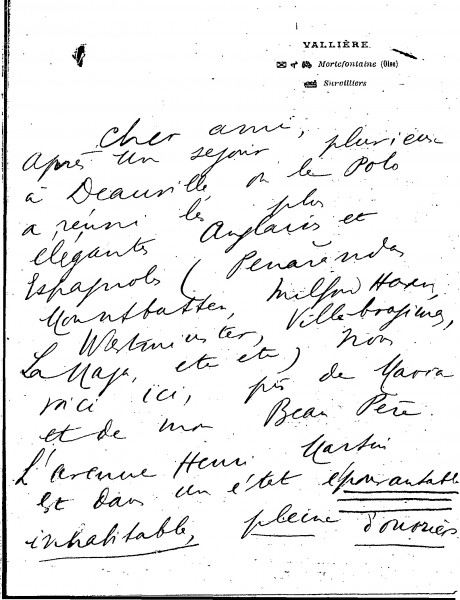 VALLIÈRE.
Mortefontaine (Oise)
Survilliers
Cher ami,
Après un séjour pluvieux
à Deauville où le Polo
a réuni les plus
élégants Anglais et
Espagnols (Penarenda
Mountbatten, Milford Haven,
Westminster, Villabragima,
La Maza, etc etc) nous
voici ici, près de Maora
et de mon Beau Père.
L'avenue Henri Martin
est dans un état épouvantable
inhabitable, pleine d'ouvriers